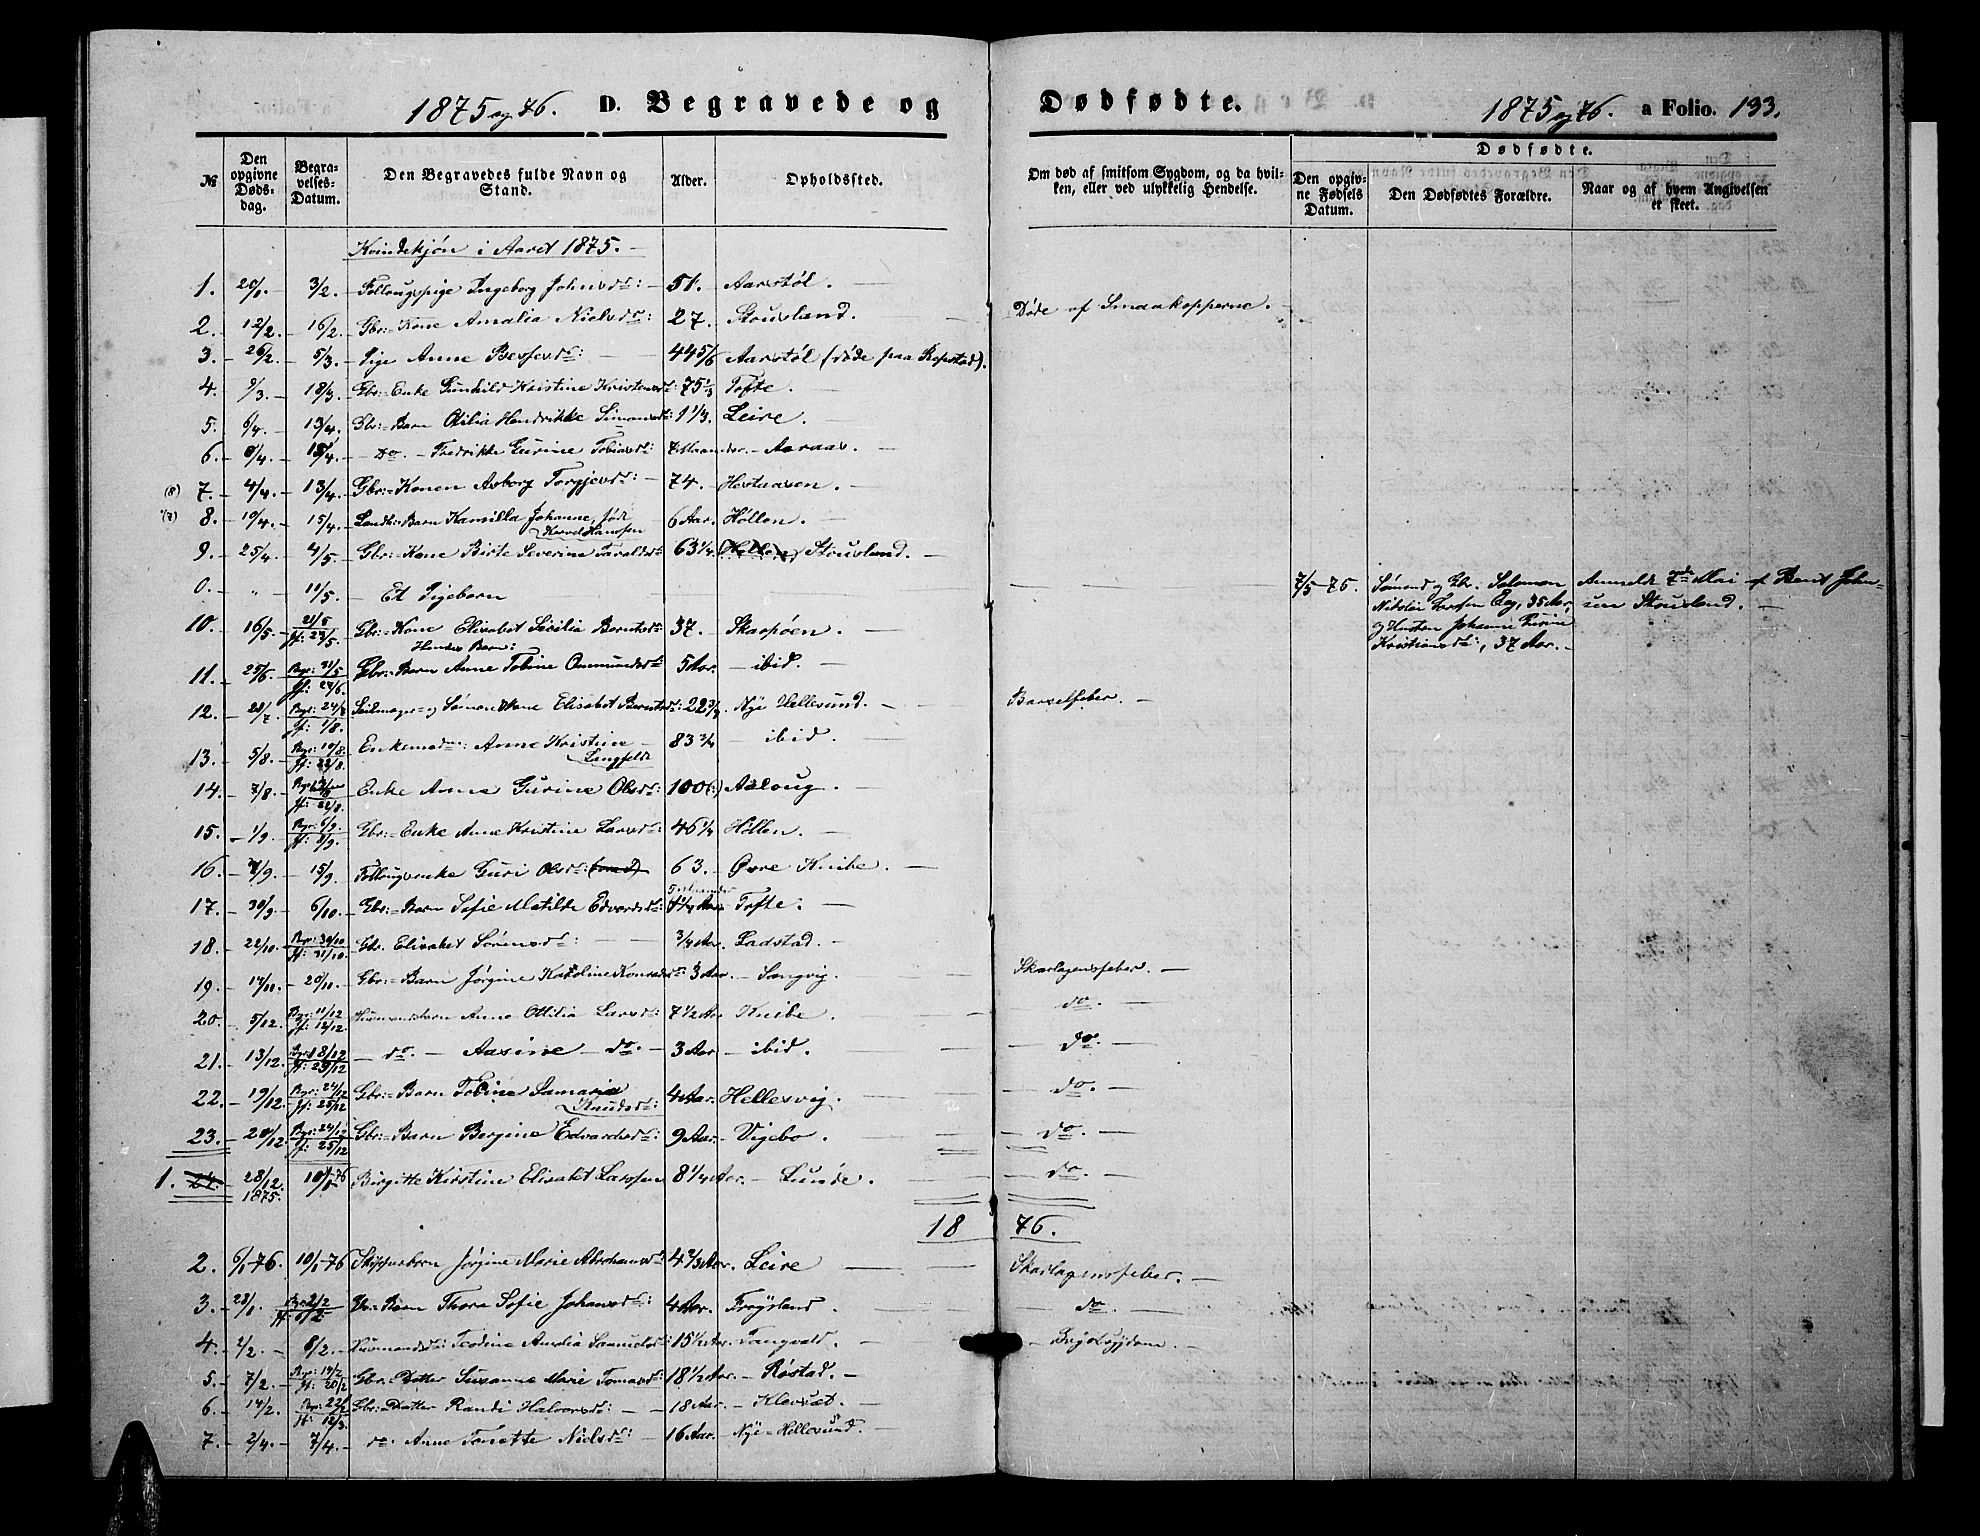 1875 og 76. D. Begravede og Dødfødte. 1875 og 76. a Folio. 133.
№ Den opgivne Døds-dag. Begra-velses-Datum. Den Begravedes fulde Navn og Stand. Alder. Opholdssted. Om død af smitsom Sygdom, og da hvil-ken, eller ved ulykkelig Hendelse. Dødfødte. Den opgiv-ne Fødsels Datum. Den Dødfødtes Forældre. Naar og af hvem Angivelsen er skeet.
Kvindekjøn i Aaret 1875.
1. 20/1. 3/2. Ingeborg Johnsd: 51. Aarstøl.
2. 12/2. 16/2. Gbr: Kone Amalia Nielsd: 27. Stousland. Døde af Smaakopperne.
3. 26/2. 5/3. Pige Anne d: 44 5/6 Aarstøl (døde paa Repstad).
4. 9/3. 18/3. Gbr: Enke Gunhild Kristine Kristensd: 75 1/3 Tofte.
5. 6/4. 13/4. Gbr: Barn Otilia Hendrikke Simonsd: 1 1/3. Leire.
6. 8/4. 15/4. Do. Fredrikke Gurine Tobiasd: 7 Maaneder. Aaraas.
(8) 7. 4/4. 13/4. Gbr: Konen Asborg Torgjersd: 74. Hestaasen.
(7) 8. 10/4. 15/4. Barn Kamilla Johanne, født 6 Aar. Høllen.
Hanssen
9. 25/4. 4/5. Gbr: Kone Birte Severine Taraldsd: 63 1/4 (Høllen) Stousland.
0. " 11/5. Et Pigebarn 7/5-75. Sømand og Gbr: Salomon Anmeldt 7de Mai af Berit John-
Nikolai Larssen Eeg, 35 Aar, sen Stousland.
og Hustru Johanne Gurine
Kristiansd:, 37 Aar.
10. 16/5. 21/5 Jf: 23/5. Gbr: Kone Elisabet Sesilia Berntsd: 37. Skarpøen.
Hendes Barn:
11. 25/5. Bgr: 31/5 Jf: 27/6. Gbr: Barn Anne Tobine Ommundsd: 5 Aar. ibid.
12. 28/7. Jf: 1/8. Seilmager- og Sømandskone Elisabet Berntsd: 22 3/4 Nye Hellesund. Barselfeber.
13. 5/8. Bgr: 10/8. Jf: 22/8. Enkemad: Anne Kristine 83 3/4 ibid.
Langfeldt
14. 7/8. Jf: 22/8. Enke Anne Gurine Olsd: 100(:) Aaloug.
15. 1/9. Bgr: 6/9. Jf: 8/9. Gbr: Enke Anne Kristine Larsd: 46 1/4 Høllen.
16. 7/9. 15/9. Enke Guri Olsd: 63. Øvre Knibe.
17. 30/9. 6/10. Gbr: Barn Sofie Matilde Edvardsd: Tofte.
18. 22/10. Bgr: 30/10 Jf: 31/10. Gbr. Elisabet Sørensd: 3/4 Aar. Ladstad.
19. 14/11. 20/11. Gbr: Barn Jørgine Karoline Konradsd: 3 Aar. Langvig. Skarlagensfeber.
20. 5/12. Bgr: 11/12 Jf: 12/12. Husmandsbarn Anne Ottilia Larsd: 7 1/2 Aar Knibe. do.
21. 13/12. Bgr: 18/12 Jf: 25/12 do. Aasine do. 3 Aar ibid. do.
22. 19/12. Bgr: 24/12 Jf: 25/12 Gbr: Barn Tobine Samaria 4 Aar. Hellesvig. do.
Knudsd:
23. 20/12. Bgr: 24/12 Jf: 25/12 Gbr: Barn Bergine Edvardsd: 9 Aar. Vigebo. do.
1. 24. 28/12. 1875. 10/1-76 Birgitte Kirstine Elisabet Larssen 8 1/4 Aar. Lunde. do.
1876.
2. 6/1-76. 10/1-76 Skipperbarn Jørgine Marie Abrahamsd: 4 2/3 Aar. Leire Skarlagensfeber.
3. 28/1. Bgr: 2/2 Jf: 6/2 Gbr: Barn Thora Sofie Johansd: 4 Aar. Frøysland. do.
4. 2/2. 8/2. Husmandsd: Teodine Amalia Samuelsd: 15 1/2 Aar. Tangvald. Brystsygdom.
5. 7/2. Bgr: 14/2 Jf: 20/2 Gbr: Datter Susanne Marie Tomasd: 18 1/2 Aar. Røstad.
6. 14/2. Bgr: 22/2 Jf: 12/3. Gbr: Datter Randi Halvorsd: 18 Aar. Klevset.
7. 2/4. 7/4. do: Anne Tonette Nielsd: 16 Aar. Nye-Hellesund.